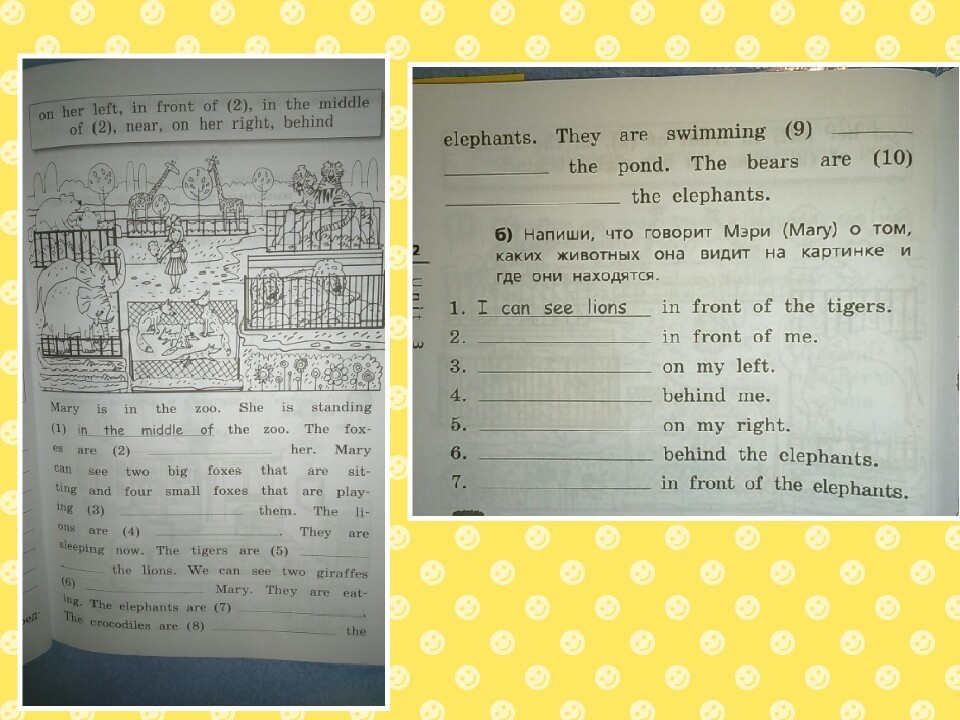 on her left, in front of (2), in the middle
of (2), near, on her right, behind
Mary is in the zoo. She is standing
(1) in the middle of the zoo. The fox-
es are (2) ____ her. Mary
can see two big foxes that are sit-
ting and four small foxes that are play-
ing (3) ____ them. The li-
ons are (4) ____. They are
sleeping now. The tigers are (5) ____
____ the lions. We can see two giraffes
(6) ____ Mary. They are eat-
ing. The elephants are (7) ____.
The crocodiles are (8) ____ the
elephants. They are swimming (9) ____
____ the pond. The bears are (10)
____ the elephants.
б) Напиши, что говорит Мэри (Mary) о том,
каких животных она видит на картинке и
где они находятся.
1. I can see lions in front of the tigers.
2. ____ in front of me.
3. ____ on my left.
4. ____ behind me.
5. ____ on my right.
6. ____ behind the elephants.
7. ____ in front of the elephants.
2
Unit 3